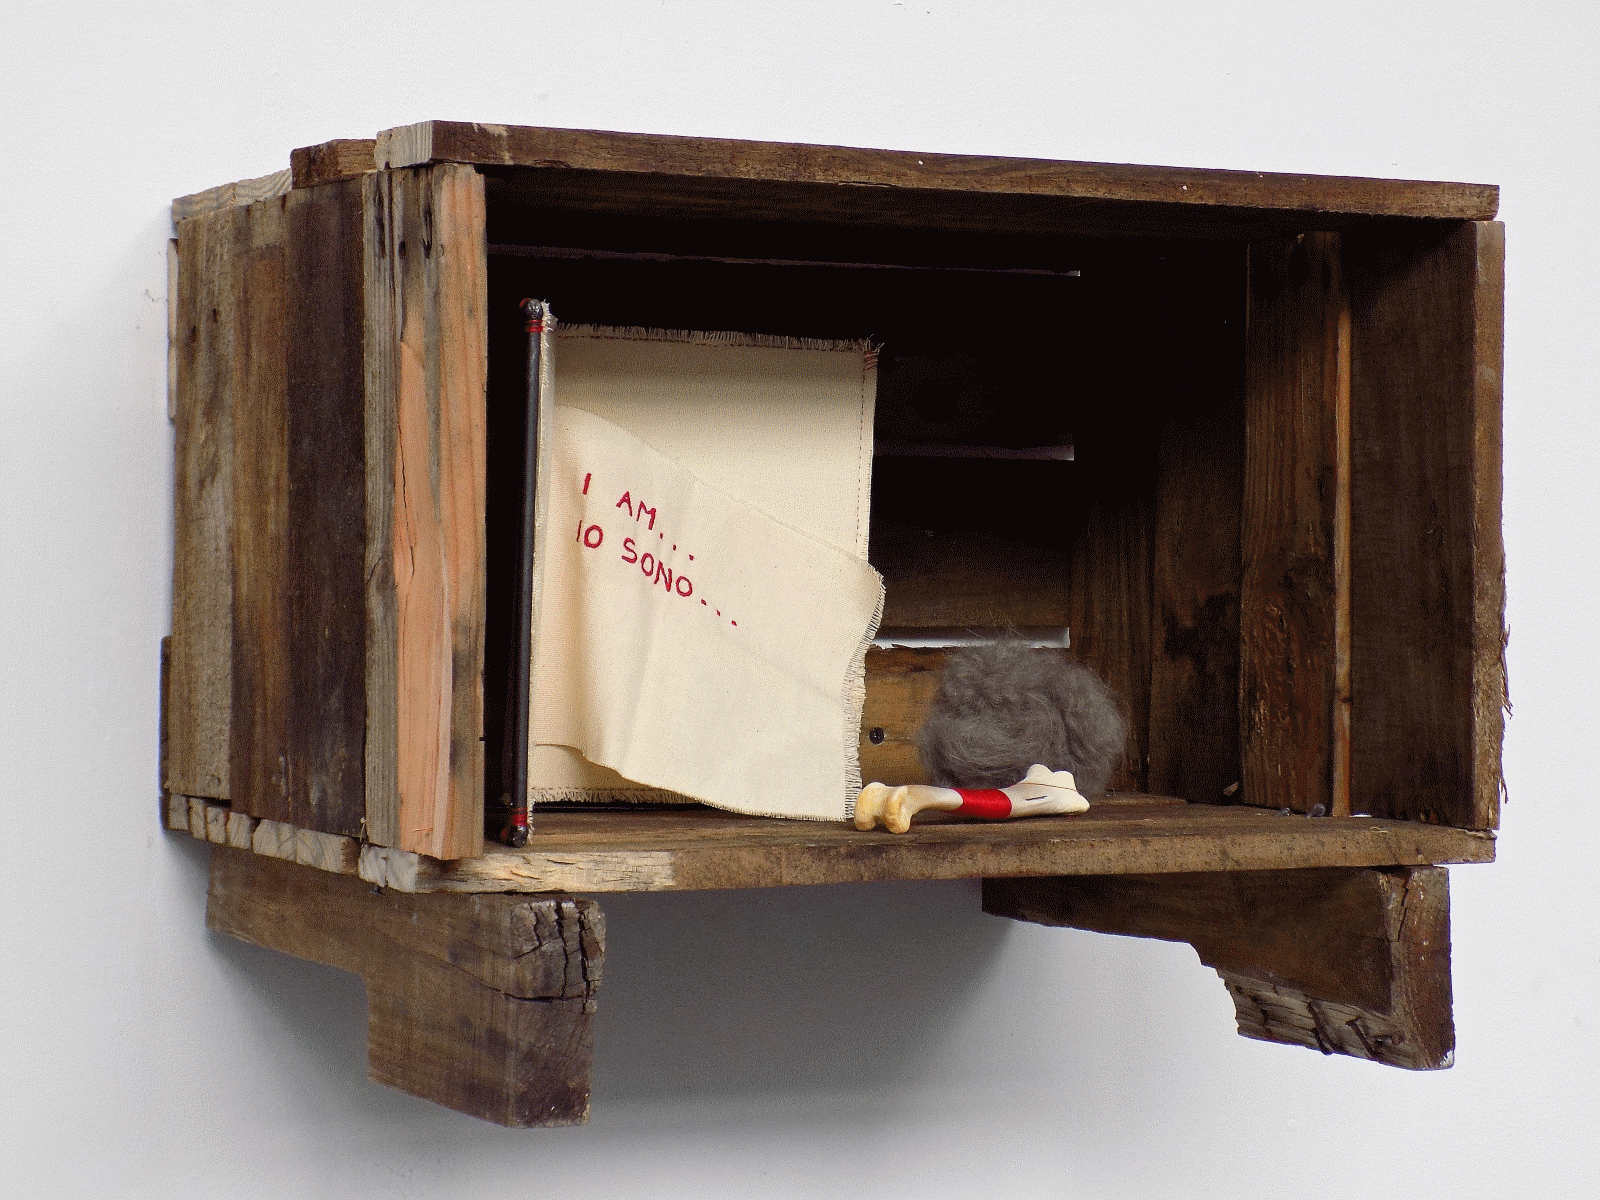 I AM...
IO SONO...